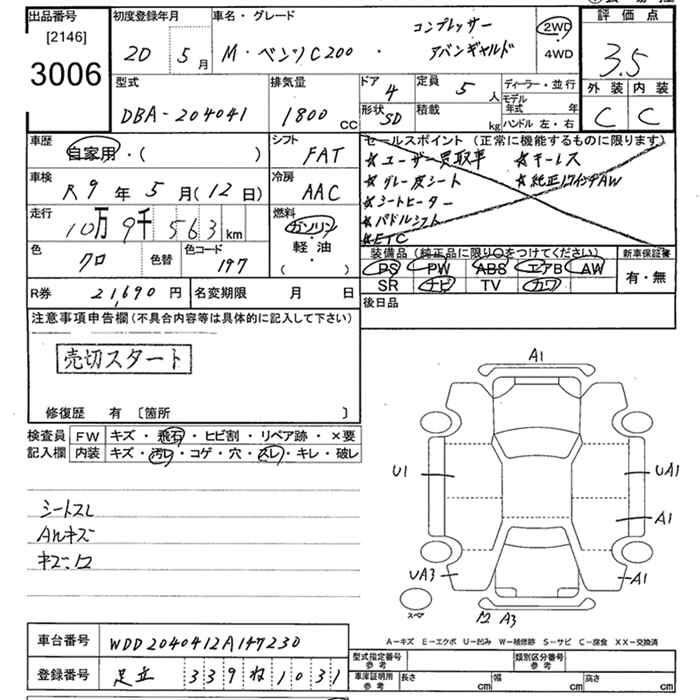 出品番号
[2146]
3006
初度登録年月
20 5月
車名・グレード
M・ベンツC200 ・ コンプレッサー アバンギャルド
2WD
4WD
評価点
3.5
外装 内装
C C
型式
DBA-204041
排気量
1800 CC
ドア 4
定員 5 人
形状 SD
積載 kg
ディーラー・並行
モデル年式 年
ハンドル 左・右
車歴
自家用・( )
シフト
FAT
車検
R9年5月(12日)
冷房
AAC
走行
10万9千563km
燃料
ガソリン
軽・油
( )
色
クロ
色替
色コード
197
セールスポイント (正常に機能するものに限ります)
☆ユーザー買取車 ☆キーレス
☆グレー皮シート ☆純正17インチAW
☆シートヒーター
☆パドルシフト
☆ETC
装備品 (純正品に限り○をつけてください)
PS PW ABS エアB AW
SR ナビ TV カワ
新車保証書
有・無
R券 21,690円
名変期限 月 日
後日品
注意事項申告欄(不具合内容等は具体的に記入して下さい)
売切スタート
修復歴 有 〔箇所 〕
検査員記入欄
FW キズ・飛石・ヒビ割・リペア跡・×要
内装 キズ・汚レ・コゲ・穴・スレ・キレ・破レ
シートスレ
AWキズ
A1
U1
UA1
A1
UA3
A1
A3
スペア
A-キズ E-エクボ U-凹み W-補修跡 S-サビ C-腐食 XX-交換済
車台番号
WDD2040412A147230
登録番号
足立 339 ね 1031
型式指定番号 参考
類別区分番号 参考
車庫証明用 参考
長さ cm 幅 cm 高さ cm